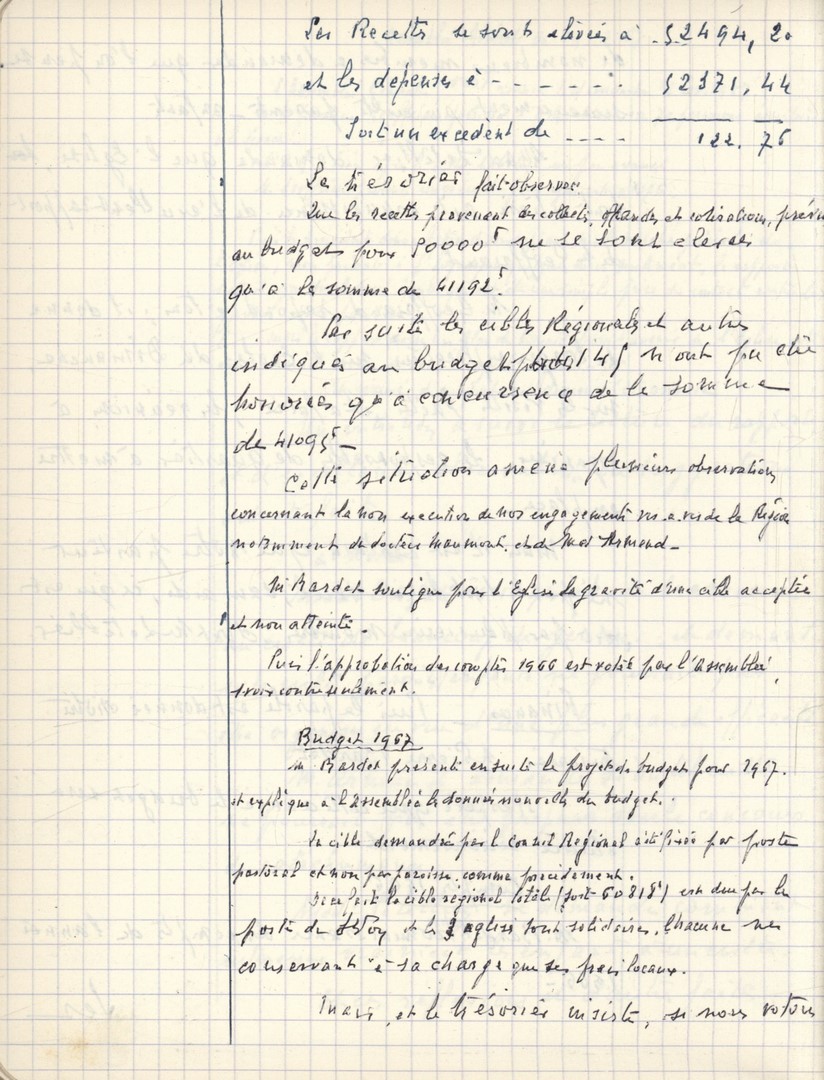 Les Recettes se sont élevées à 52494,20
et les dépenses à - - - - - - 52371,44
Soit un excédent de - - - - 122.76
Le trésorier fait observer
Que les recettes provenant des collectes, offrandes et cotisations, prévu
au budget pour 50000F ne se sont élevées
qu'à la somme de 41192F.
Par suite les cibles Régionales et autres
indiqués au budget n'ont pu être
honorées qu'à concurrence de la somme
de 41095F -
Cette situation amène plusieurs observations
concernant la non execution de nos engagements vis a vis de la Région
notamment du docteur Maumont, et de Armand -
M Bardet souligne pour l'Eglise la gravité d'une cible acceptée
et non atteinte.
Puis l'approbation des comptes 1966 est votée par l'Assemblée,
voix contre seulement.
Budget 1967
M Bardet présente ensuite le projet de budget pour 1967.
et explique à l'assemblée les données nouvelles du budget.
La cible demandée par le Conseil Régional a été fixée par poste
pastoral et non par paroisse, comme précédemment.
De ce fait la cible régionale totale (soit 60818F) est due par le
poste de et les 3 eglises sont solidaires, Chacune ne
conservant à sa charge que ses frais locaux.
Mais, et le trésorier insiste, si nous votons